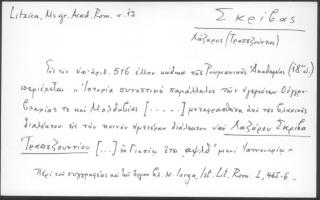 Litzica, Ms gr. Acad. Rom. σ. 12
Σκρίβας
Λάζαρος (Τραπεζούντιος)
Εἰς τὸν ὑπ' ἀριθ. 516 ἑλλην. κώδικα τῆς Ρουμανικῆς Ἀκαδημίας (18ου αἰ.)
περιέχεται "Ἱστορία συνοπτικὴ παράλληλος τῶν ἡγεμόνων Οὐγγρο
βλαχίας τε καὶ Μολδαβίας [.....] μεταφρασθεῖσα ἀπὸ τῆς βλαχικῆς
διαλέκτου εἰς τὴν κοινὴν ἡμετέραν διάλεκτον παρὰ Λαζάρου Σκρίβα
Τραπεζουντίου [...] ἐν Γιασίῳ ἔτει αψλθʹ μηνὶ Ἰαννουαρίῳ"
Περὶ τοῦ συγγραφέως καὶ τοῦ ἔργου βλ. N. Iorga, Ist. Lit. Rom. I, 465-6.